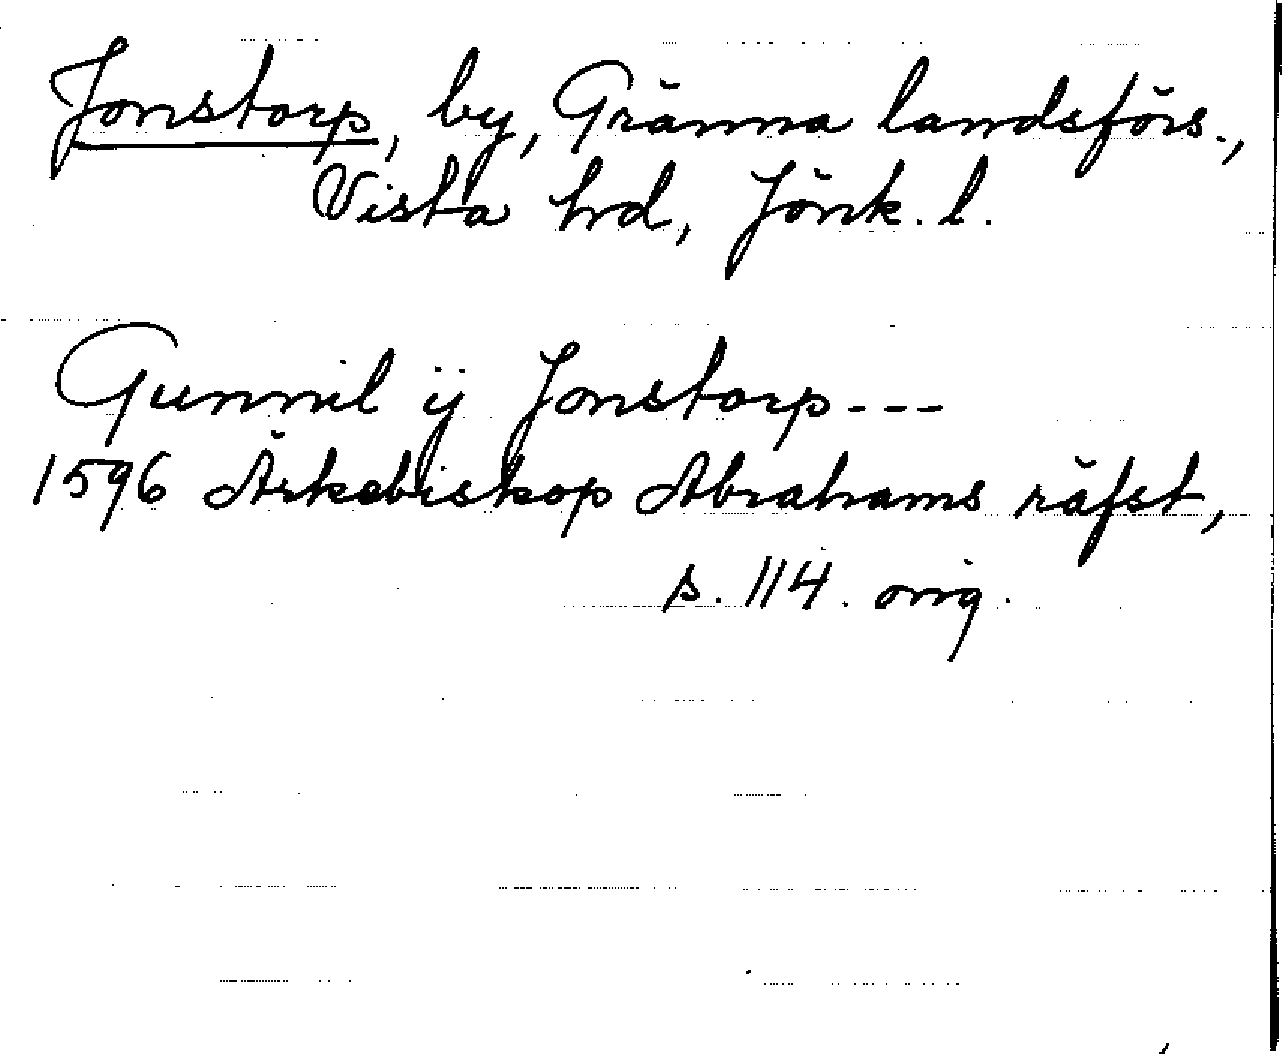 Jonstorp, by, Gränna landsförs.,
Vista hrd, Jönk. l.
Gunnil ij Jonstorp---
1596 Ärkebiskop Abrahams räfst,
s. 114. orig.